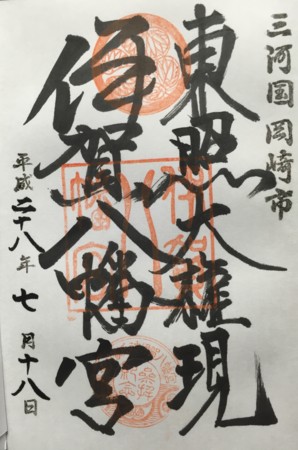 三河国 岡崎市
東照大権現
伊賀八幡宮
平成二十八年 七月十八日